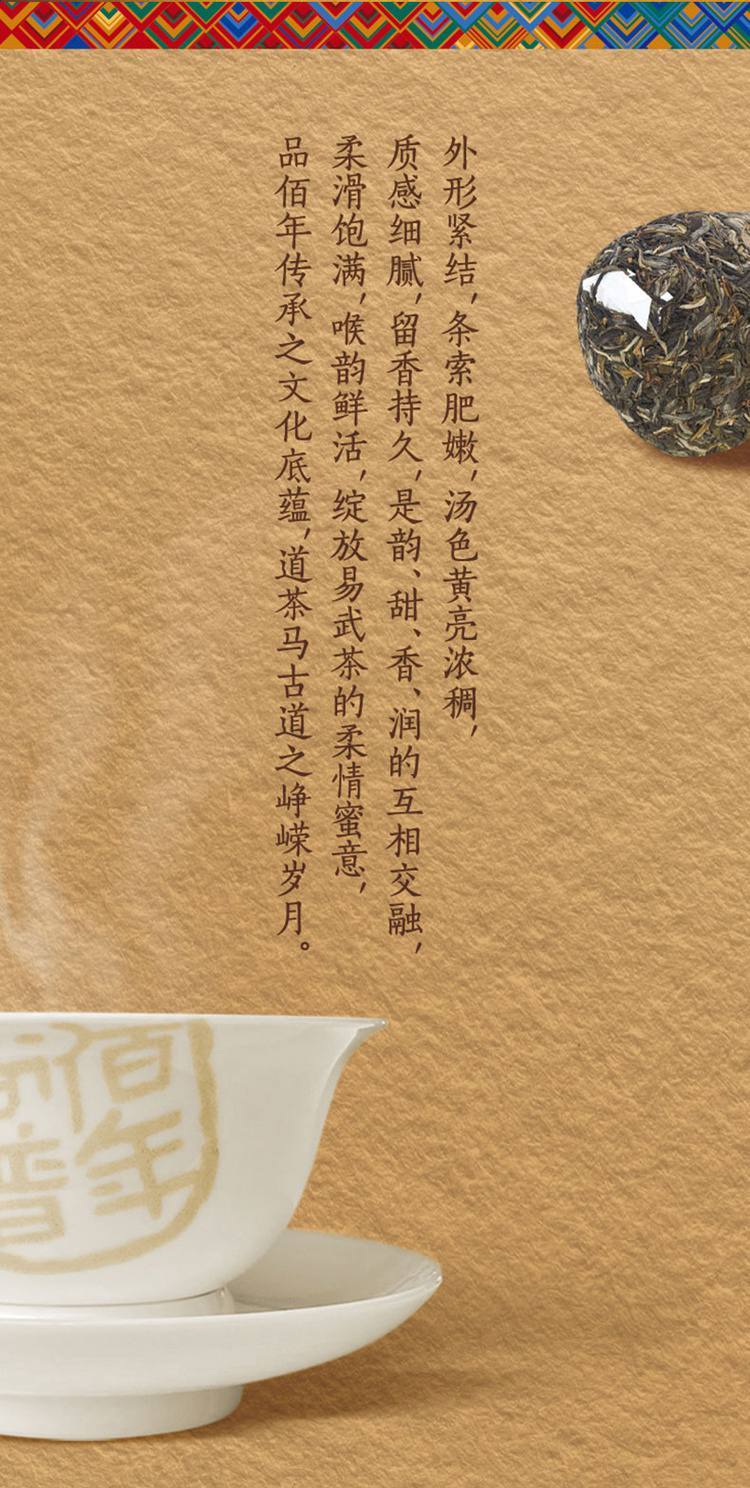 外形紧结，条索肥嫩，汤色黄亮浓稠，
质感细腻，留香持久，是韵、甜、香、润的互相交融，
柔滑饱满，喉韵鲜活，绽放易武茶的柔情蜜意，
品佰年传承之文化底蕴，道茶马古道之峥嵘岁月。
佰年
普